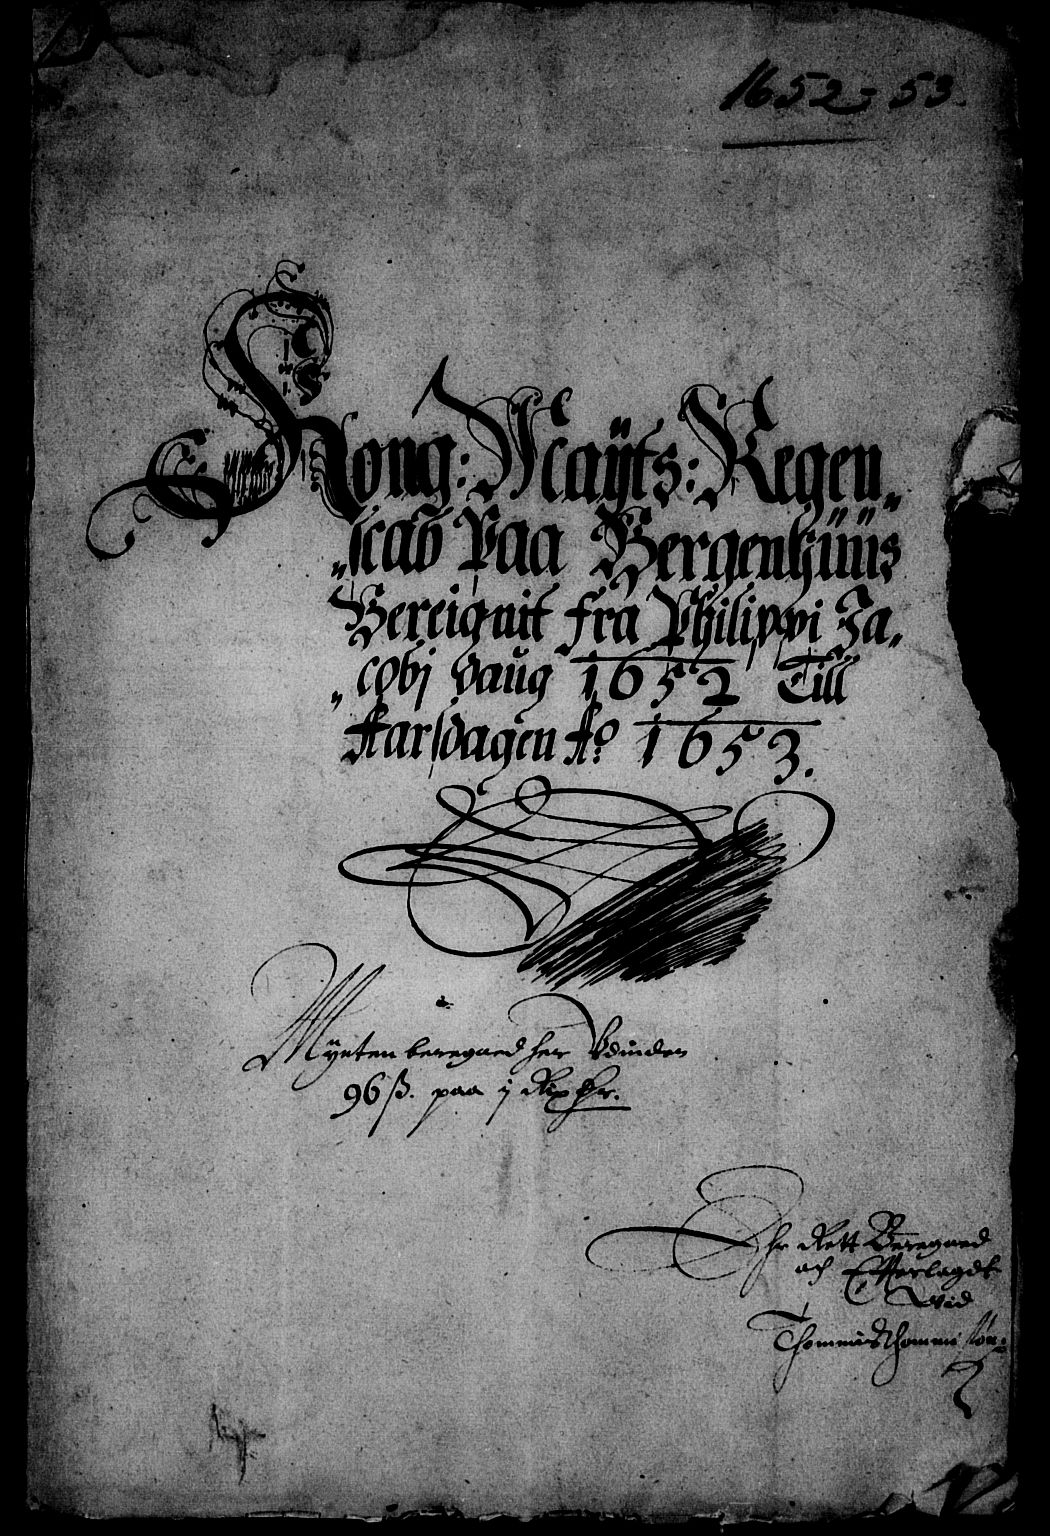 1652-53.
Kong: Maÿts: Regen„
„scab Paa Bergenhüüs
Bereignit fra Philippi Ja„
„cobj daug 1652 Till
Aarsdagen Ao 1653.
Mynten beregned her Udinden
96 ß. paa j Rix dlr.
Ehr Rett Beregned
och Efterlagdt
ved